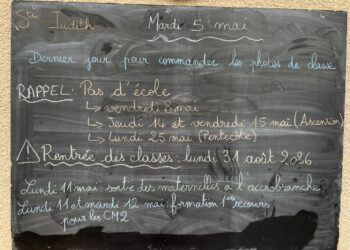 Ste Judith
Mardi 5 mai
Dernier jour pour commander les photos de classe
RAPPEL: Pas d'école
↳ vendredi 8 mai
↳ Jeudi 14 et vendredi 15 mai (Ascension)
↳ Lundi 25 mai (Pentecôte)
⚠ Rentrée des classes: lundi 31 août 2026
Lundi 11 mai: sortie des maternelles à l'accrobranche
Lundi 11 et mardi 12 mai: formation 1ers secours
pour les CM2